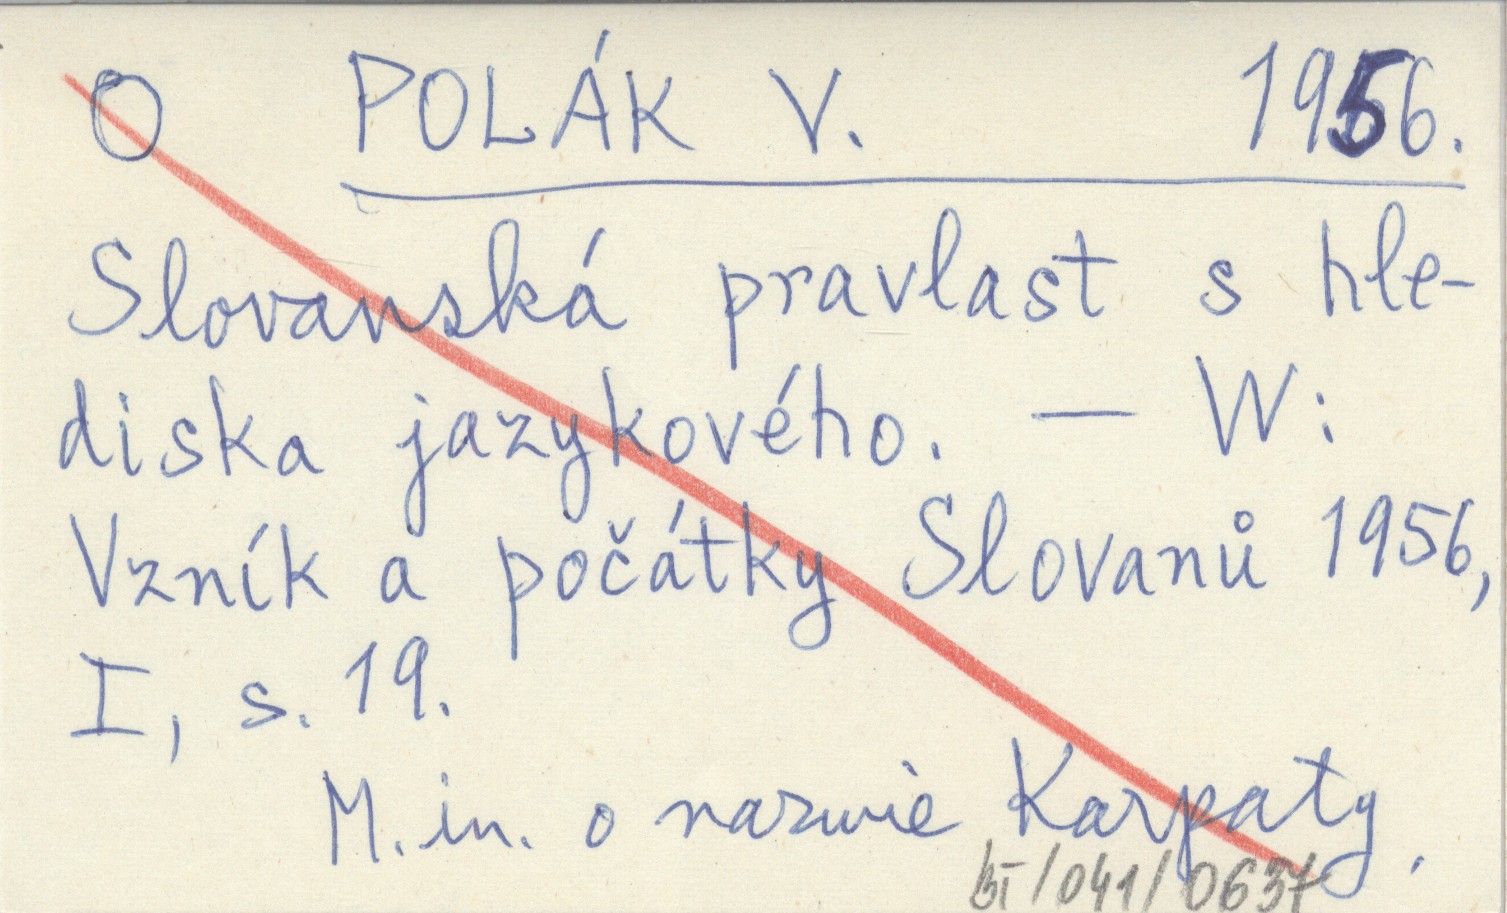 O POLÁK V. 1956.
Slovanská pravlast s hle-
diska jazykového. — W:
Vzník a počátky Slovanů 1956,
I, s. 19.
M. in. o nazwie Karpaty.
BI/041/0637